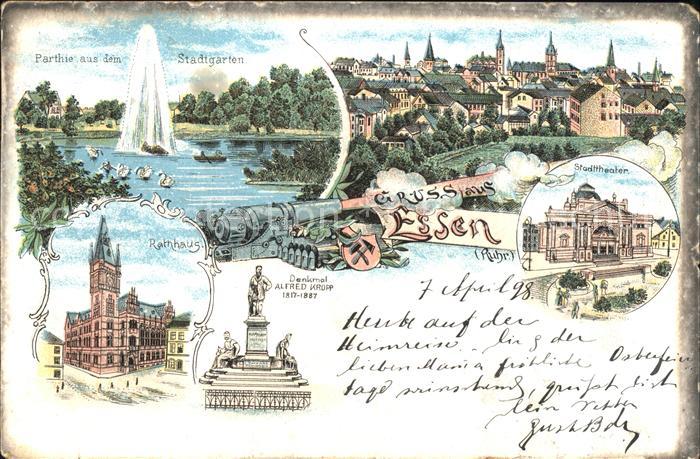 Parthie aus dem Stadtgarten
GRUSS aus
Essen
(Ruhr)
Stadttheater.
Rathhaus.
Denkmal
ALFRED KRUPP
1817-1887
7 April 98.
Heute auf der
Heimreise. der
lieben Mama fröhliche Osterfeier
tage wünschend, grüßt dich
dein Vetter